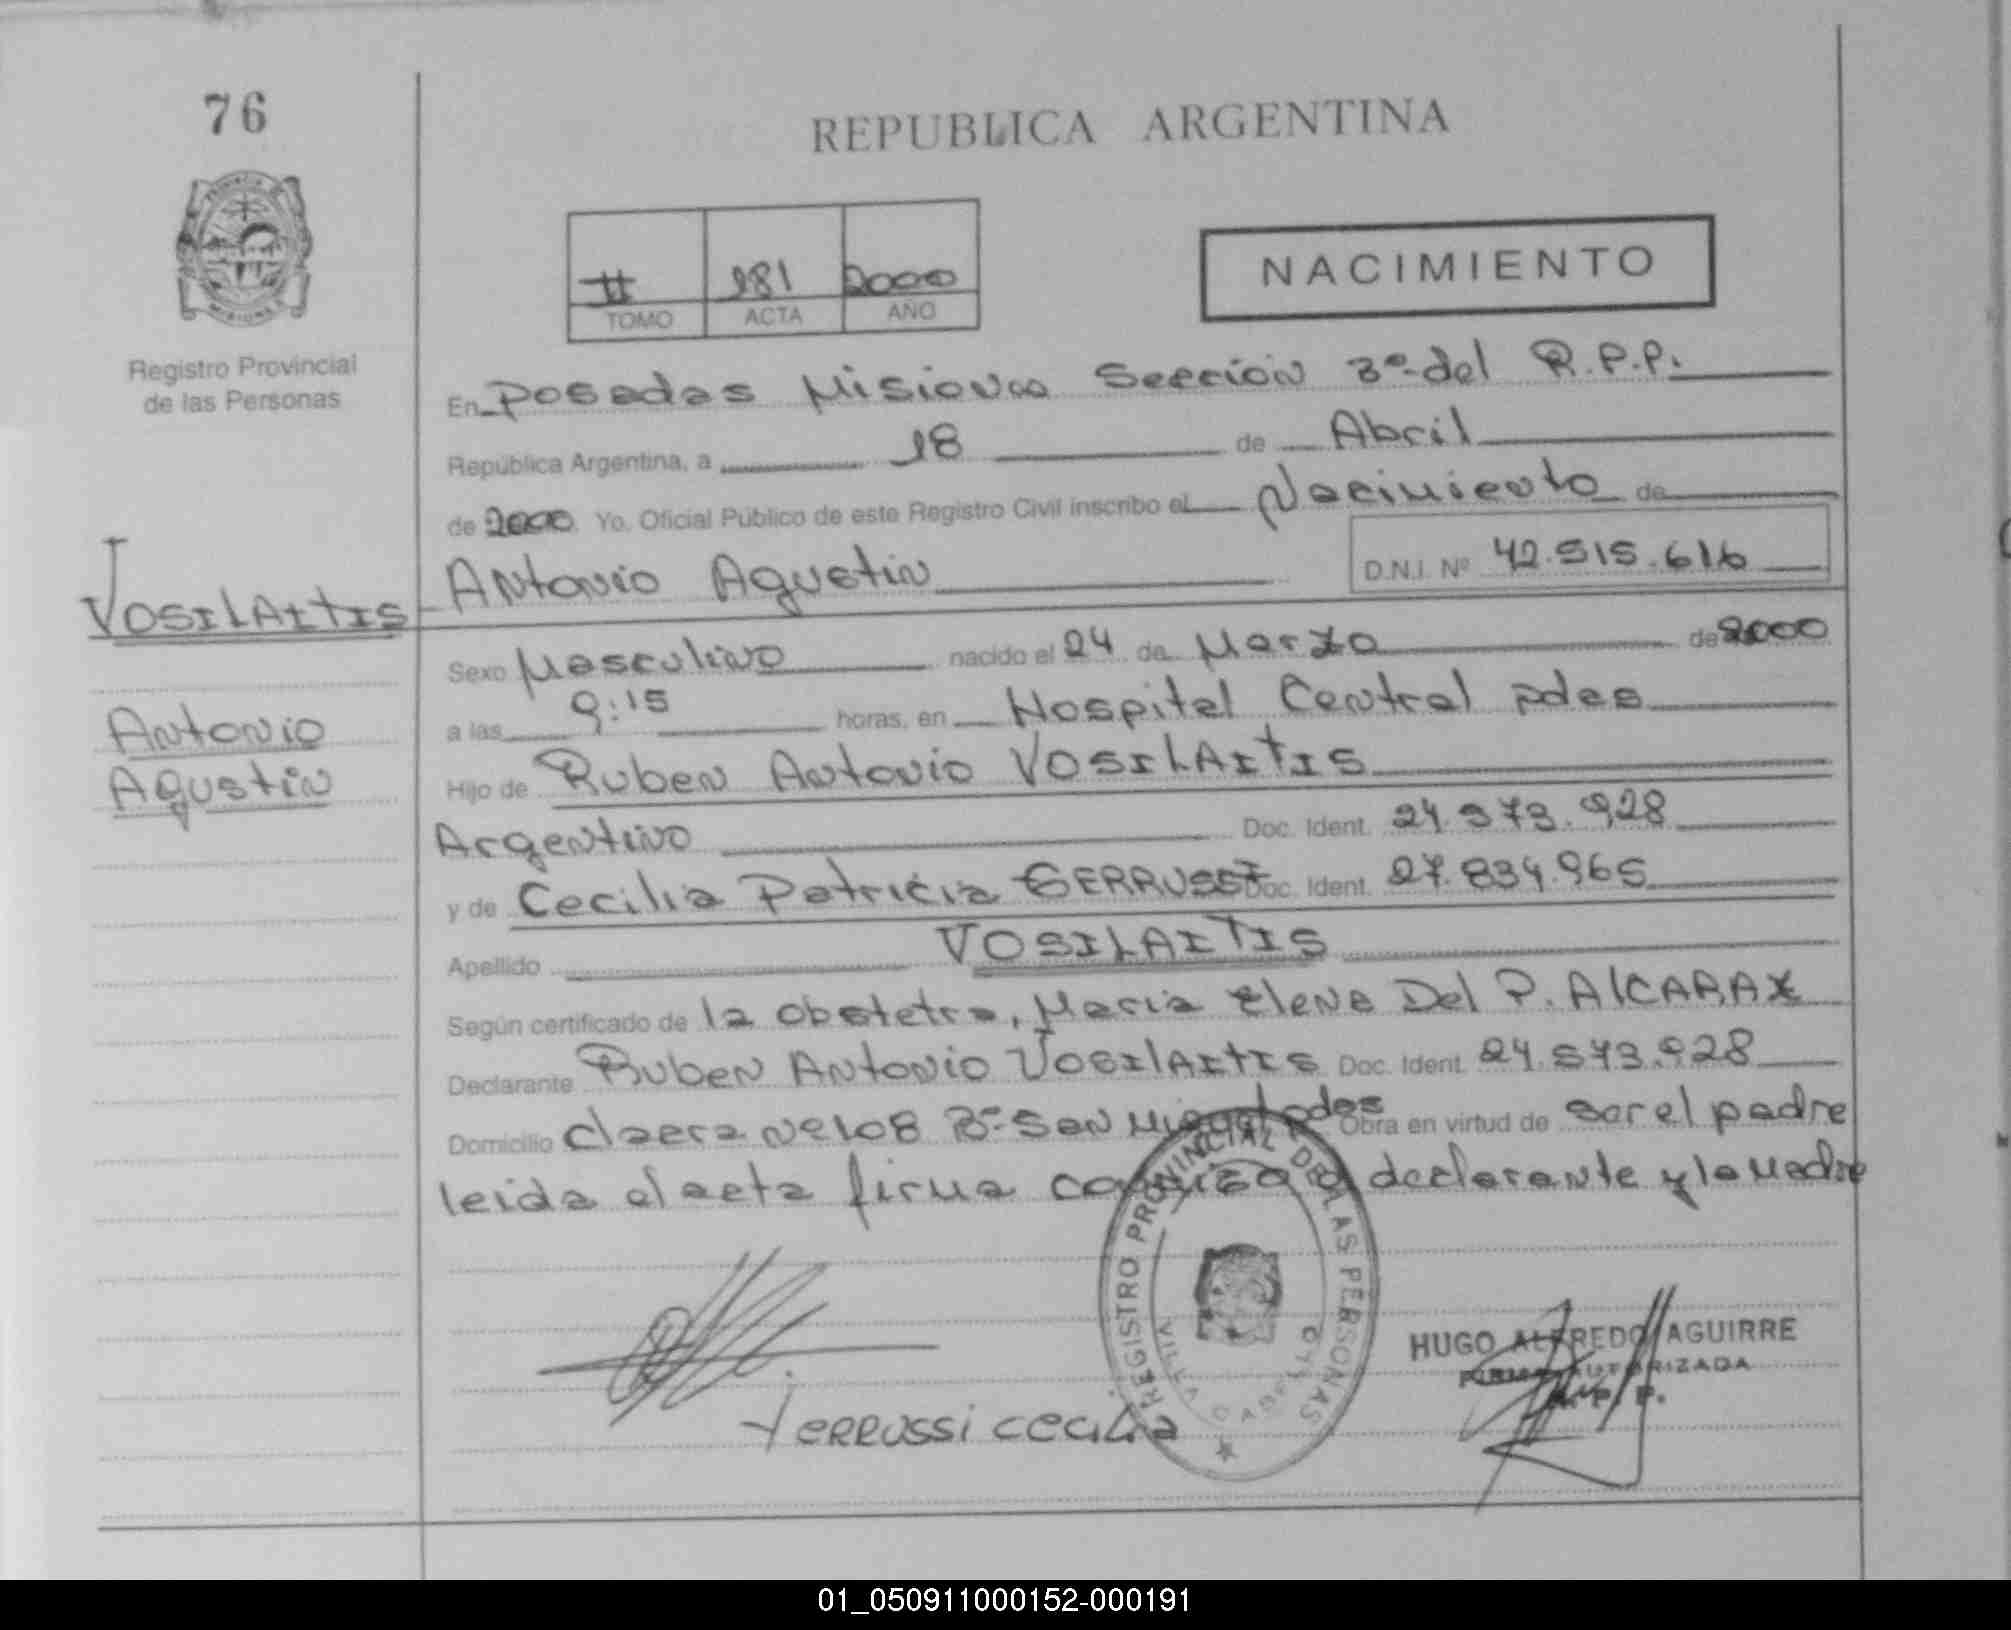 76
REPUBLICA ARGENTINA
II 181 2000
TOMO ACTA AÑO
NACIMIENTO
Registro Provincial
de las Personas
En Posadas Misiones Sección 3º del R.P.P.
República Argentina, a 18 de Abril
de 2000 Yo, Oficial Público de este Registro Civil inscribo el Nacimiento de
Antonio Agustin D.N.I. Nº 42.515.616
VOSILAITIS
Antonio
Agustin
Sexo Masculino nacido el 24 de Marzo de 2000
a las 9:15 horas, en Hospital Central pdas
Hijo de Ruben Antonio VOSILAITIS
Argentino Doc. Ident. 24.573.928
y de Cecilia Patricia GERRUSSI Doc. Ident. 27.834.965
Apellido VOSILAITIS
Según certificado de la obstetra, Maria Elena Del P. AlCARAZ
Declarante Ruben Antonio VOSILAITIS Doc. Ident. 24.573.928
Domicilio Claera Nº 108 Bº San Miguel pdas Obra en virtud de ser el padre
leida el acta firma conmigo el declarante y la Madre
REGISTRO PROVINCIAL DE LAS PERSONAS
VILLA CABELLO
HUGO ALFREDO AGUIRRE
FIRMA AUTORIZADA
R. P. P.
Yerrussi cecilia
01_050911000152-000191